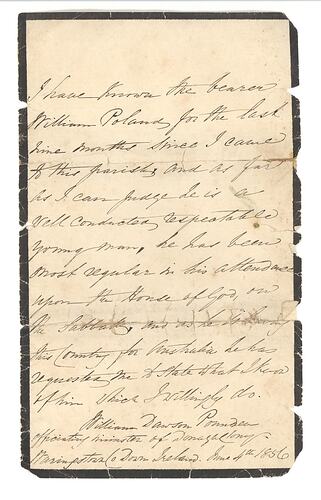 I have known the bearer
William Poland, for the last
nine months since I came
to this parish, and as far
as I can judge he is a
well conducted, respectable
young man, he has been
most regular in his attendance
upon the House of God, on
the Sabbath, and as he is leaving
this Country for Australia he has
requested me to state what I know
of him which I willingly do.
William Dawson Pounden
officiating minister of
Waringstown Co Down Ireland. June 4th 1856